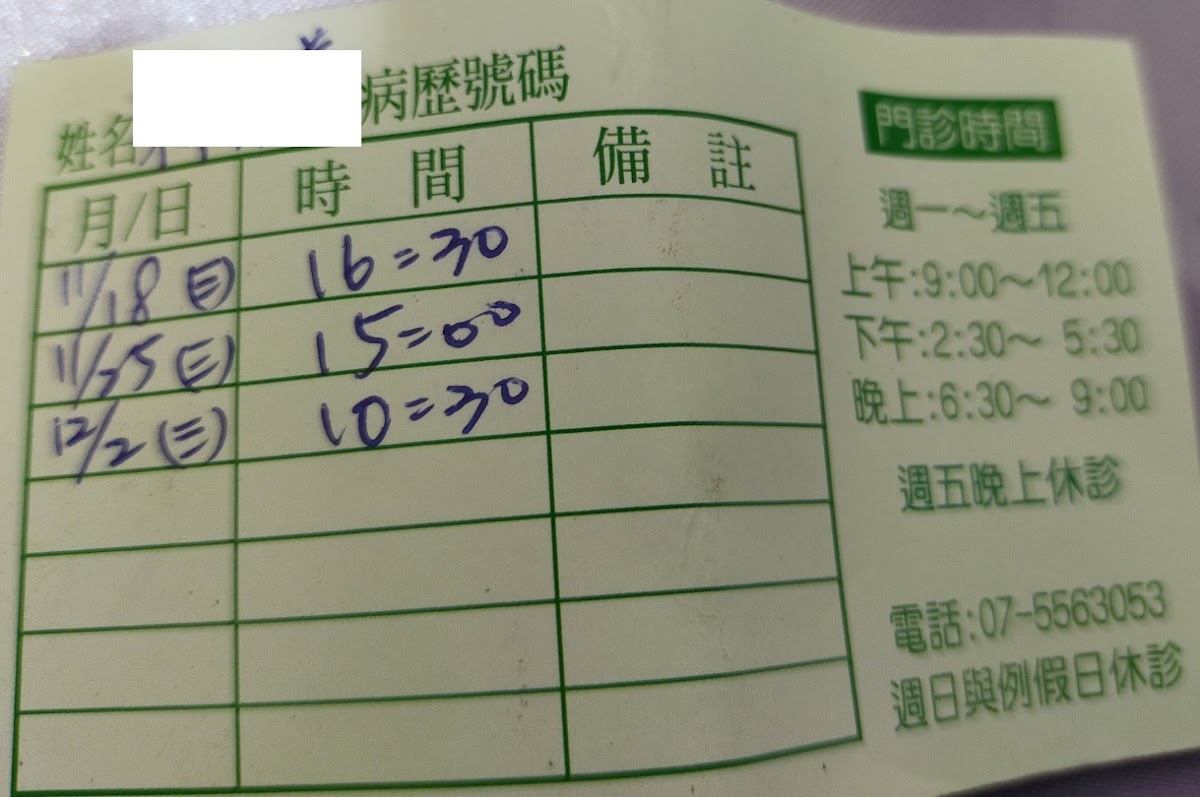 姓名 病歷號碼
月/日 時間 備註
11/18 (三) 16=30
11/25 (三) 15=00
12/2 (三) 10=30
門診時間
週一～週五
上午:9:00～12:00
下午:2:30～ 5:30
晚上:6:30～ 9:00
週五晚上休診
電話:07-5563053
週日與例假日休診